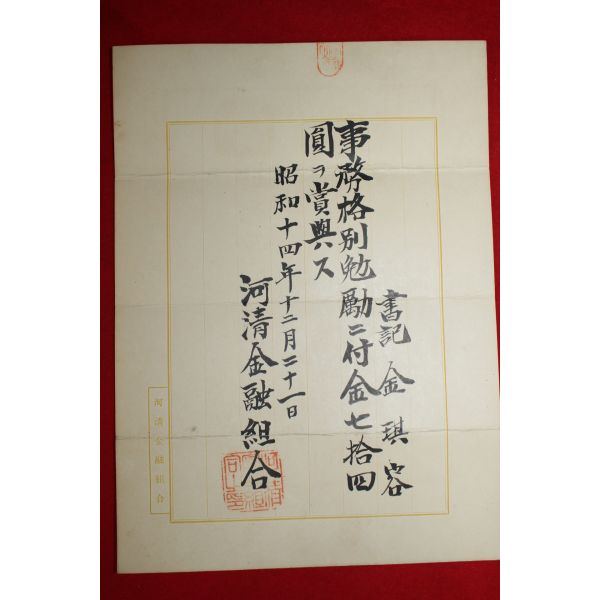 書記 金琪容
事務格別勉勵ニ付金七拾四
圓ヲ賞與ス
昭和十四年十二月二十一日
河清金融組合
河清金融組合